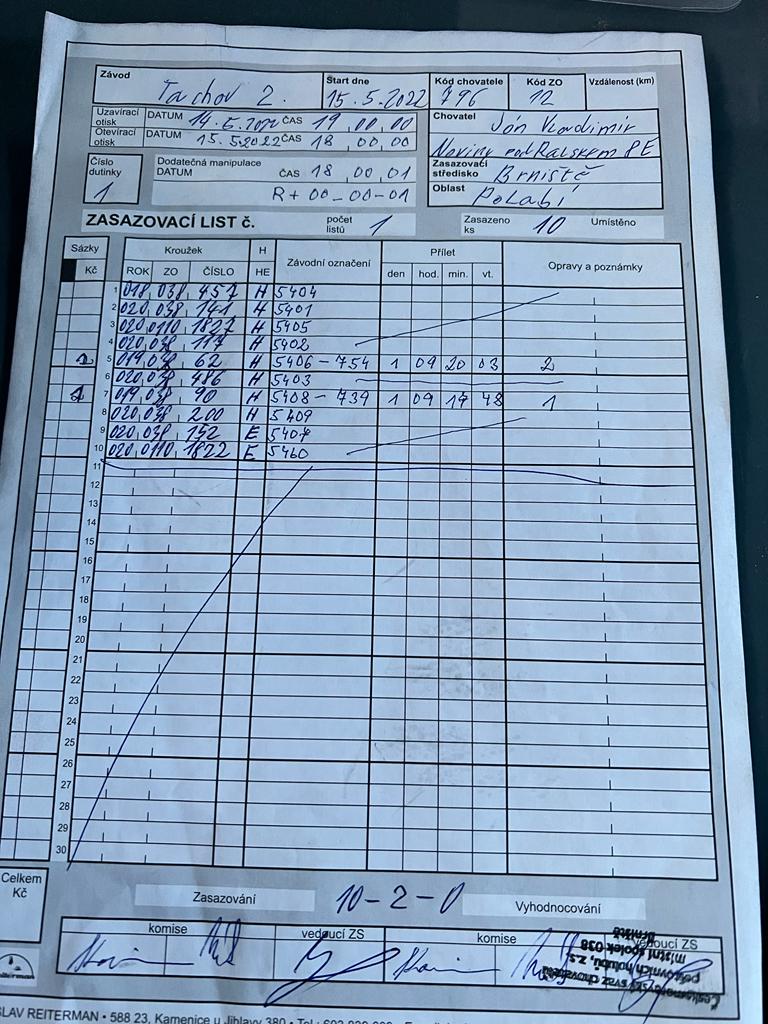 Závod Tachov 2. Start dne 15.5.2022 Kód chovatele 796 Kód ZO 12 Vzdálenost (km)
Uzavírací otisk DATUM 14.5.2022 ČAS 19,00,00
Otevírací otisk DATUM 15.5.2022 ČAS 18,00,00
Chovatel Ján Vladimír
Noviny pod Ralskem PE
Číslo dutinky 1
Dodatečná manipulace
DATUM ČAS 18 00 01
R+00-00-01
Zasazovací středisko Brniště
Oblast Polabí
ZASAZOVACÍ LIST č. počet listů 1 Zasazeno ks 10 Umístěno
Sázky Kroužek H Závodní označení Přílet Opravy a poznámky
Kč ROK ZO ČÍSLO HE den hod. min. vt.
1 018 038 457 H 5404
2 020 038 141 H 5401
3 020 0110 1827 H 5405
4 020 038 117 H 5402
1 5 019 038 62 H 5406-754 1 09 20 03 2
6 020 038 486 H 5403
1 7 019 038 90 H 5408-739 1 09 17 48 1
8 020 038 200 H 5409
9 020 038 152 E 5407
10 020 0110 1822 E 5460
11
12
13
14
15
16
17
18
19
20
21
22
23
24
25
26
27
28
29
30
Celkem Kč
Zasazování 10-2-0 Vyhodnocování
komise vedoucí ZS komise vedoucí ZS
poštovních holubů, z.s.
místní spolek 038
Brniště
SLAV REITERMAN • 588 23, Kamenice u Jihlavy 380 •